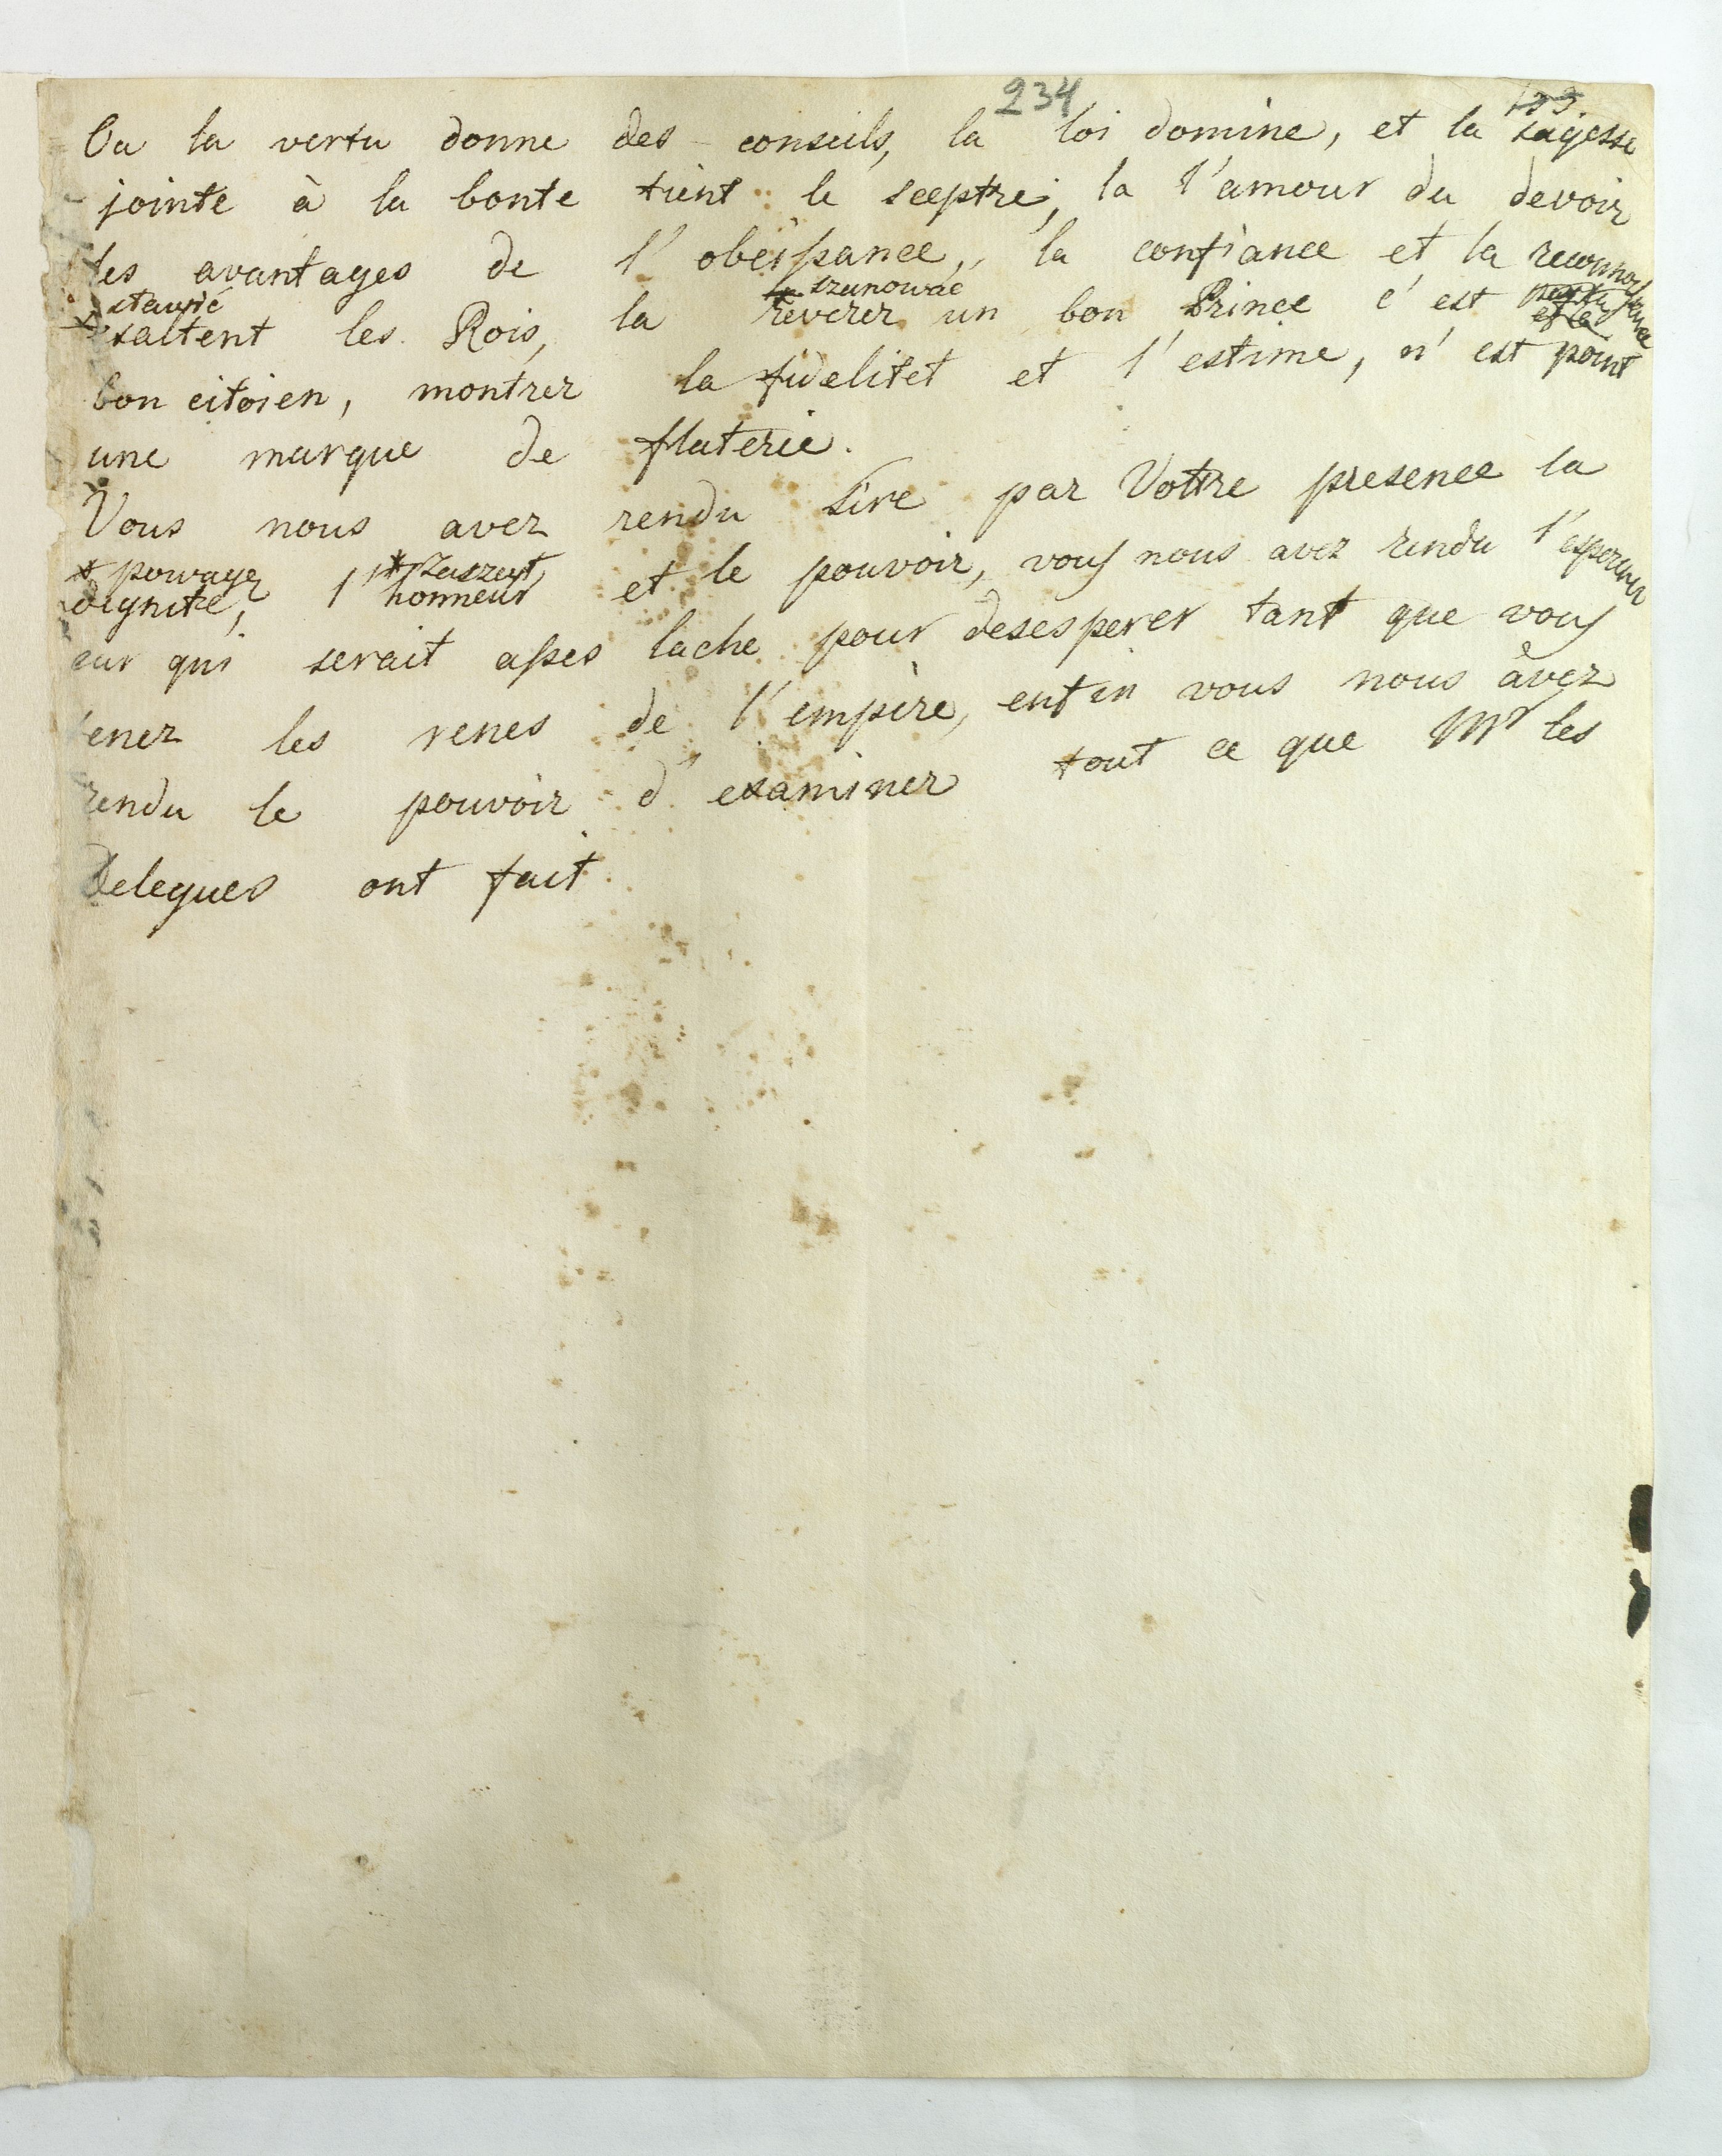 234
Ou la vertu donne des conseils, la loi domine, et la sagesse
jointe à la bonte tient le sceptre, la l'amour du devoir
les avantages de l'obeissance, la confiance et la reconnoissance
stawić szanować
exaltent les Rois, la reverer un bon Prince c'est
bon citoien, montrer la fidelitet et l'estime, n'est point
une marque de flaterie.
Vous nous avez rendu Sire par Vottre presence la
* powagę * Zaszczyt
dignite, l'honneur et le pouvoir, vous nous avez rendu l'esperence
car qui serait asses lache pour desesperer tant que vous
tenez les renes de l'empire, enfin vous nous àvez
rendu le pouvoir d'examiner tout ce que Mr les
Delegues ont fait.